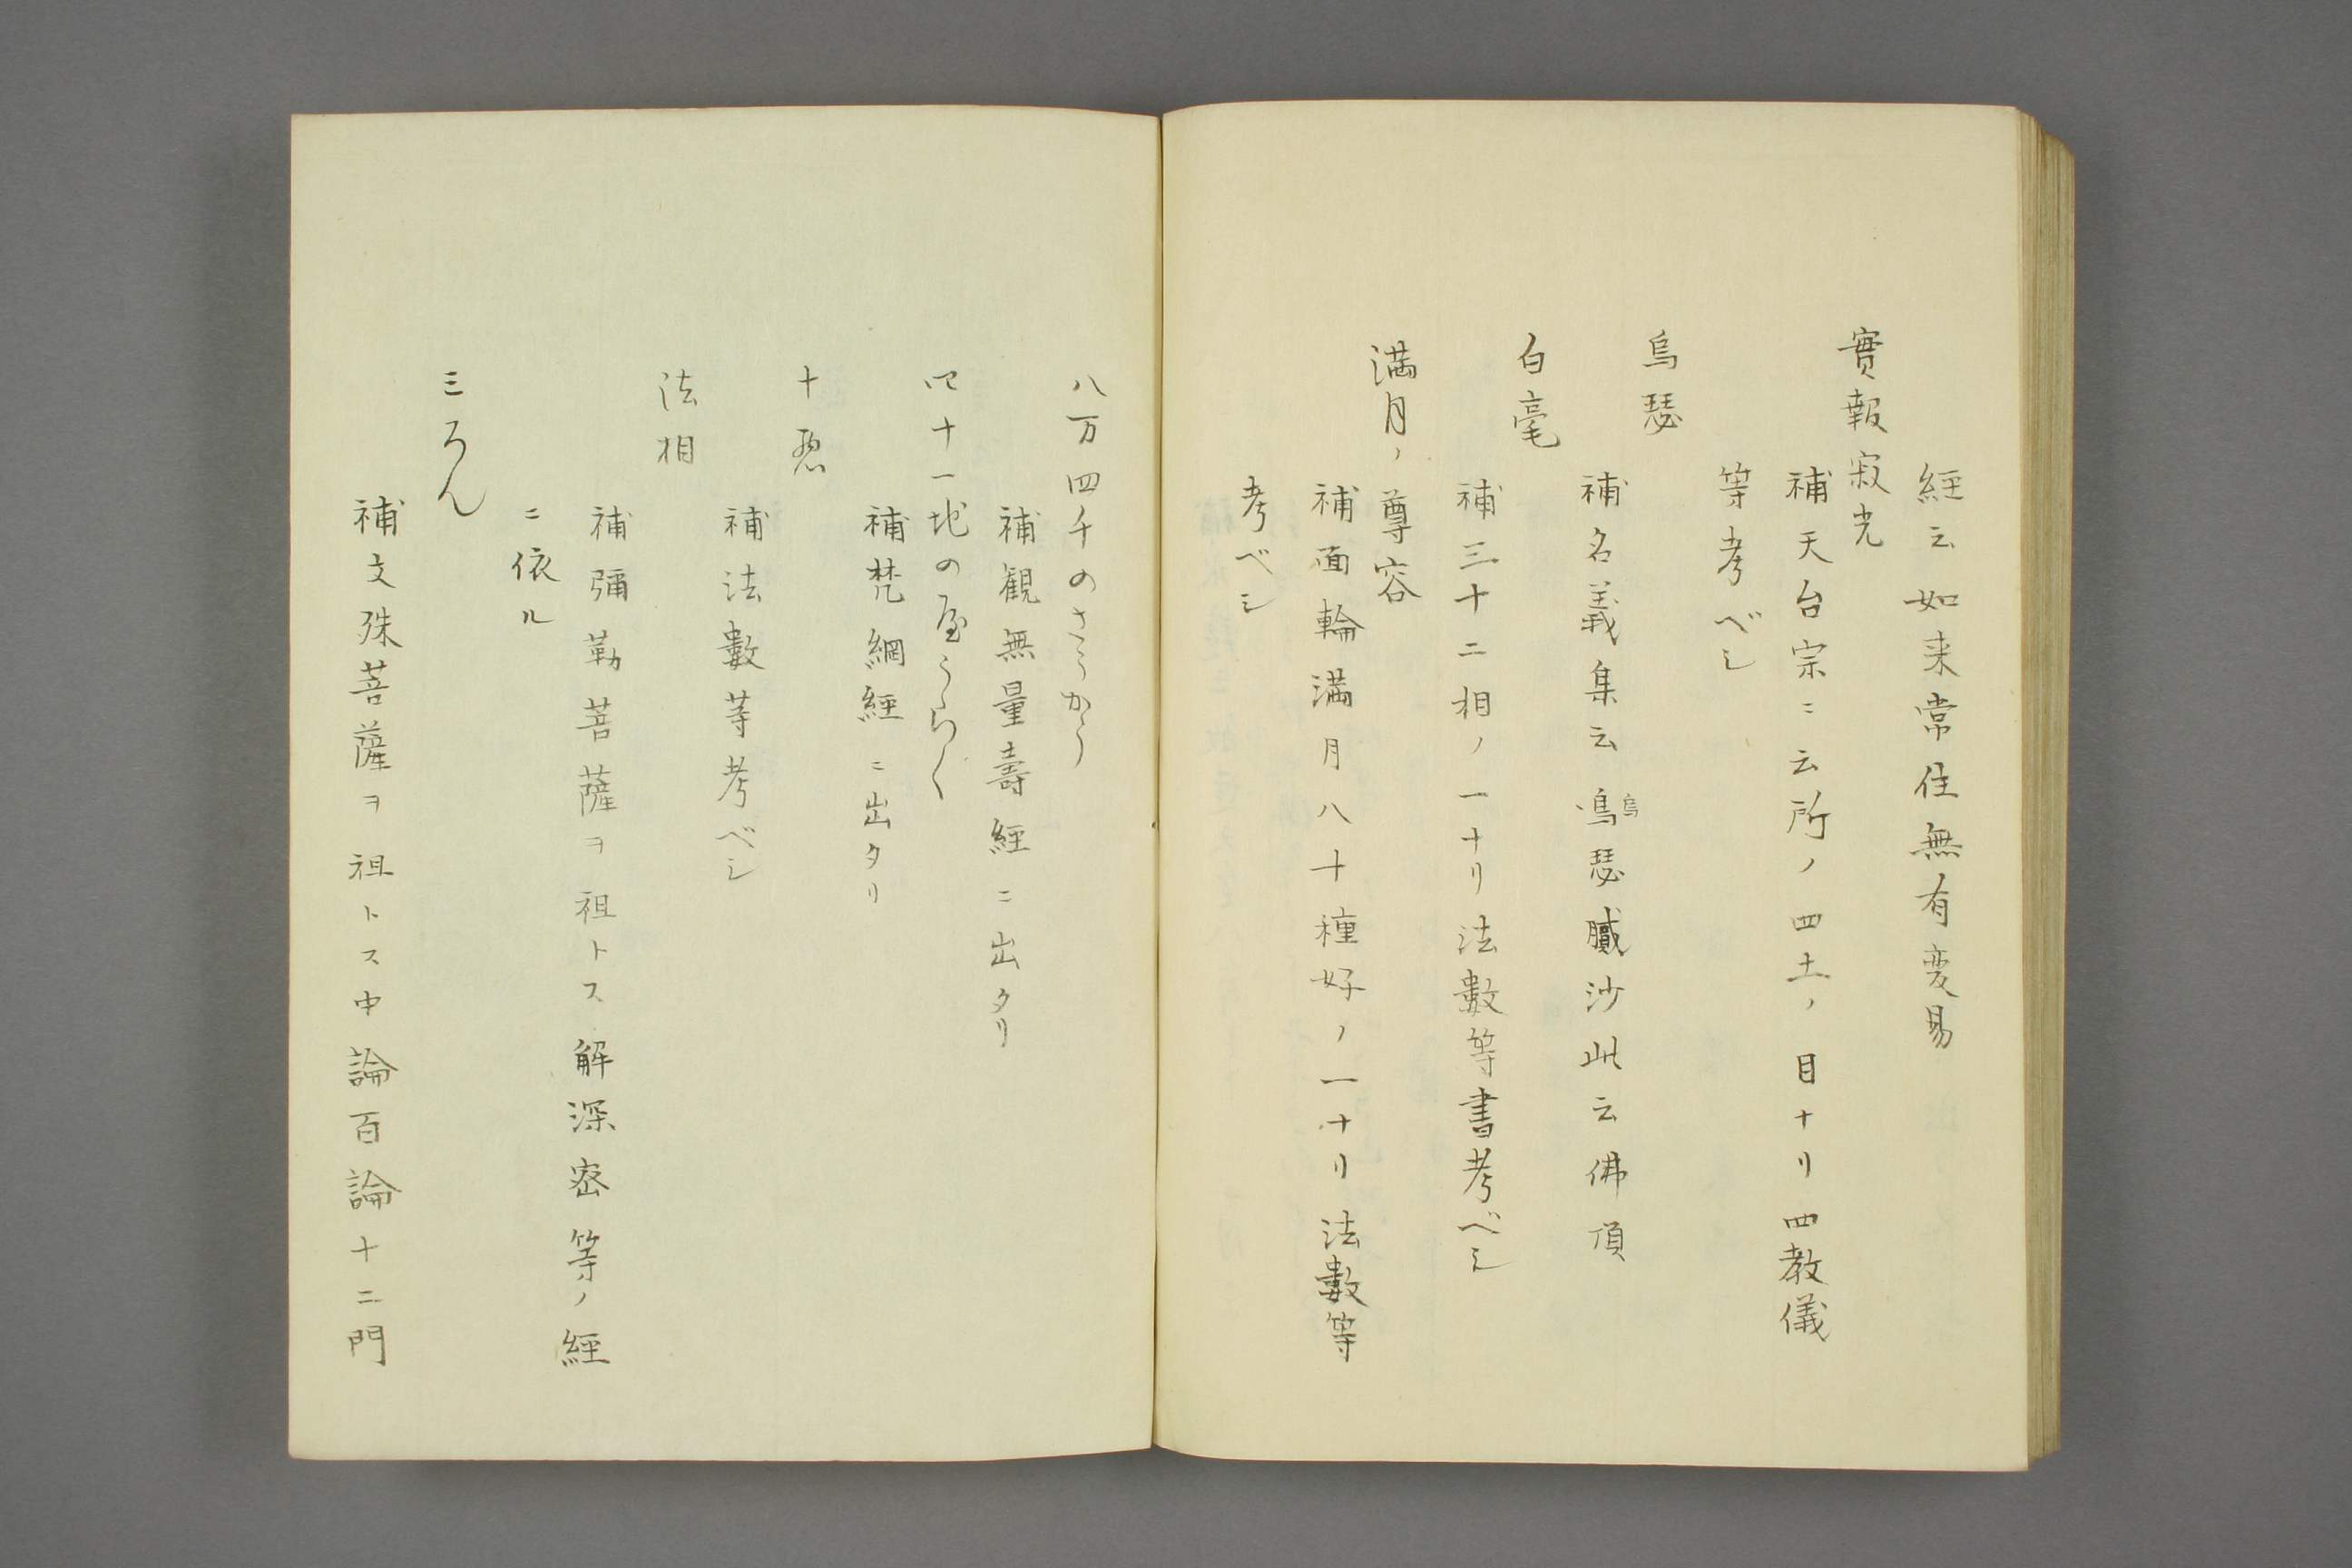 經云如来常住無有変易
實報寂光
補天台宗ニ云所ノ四土ノ目ナリ四教儀
等考ベシ
烏瑟
補名義集云嗚烏瑟膩沙此云佛頂
白毫
補三十二相ノ一ナリ法數等書考ベシ
満月ノ尊容
補面輪満月八十種好ノ一ナリ法數等
考ベシ
八万四千のさうかう
補観無量壽經ニ出タリ
四十一地のやうらく
補梵綱經ニ出タリ
十惡
補法數等考ベシ
法相
補彌勒菩薩ヲ祖トス解深密等ノ經
ニ依ル
三ろん
補文殊菩薩ヲ祖トス中論百論十二門